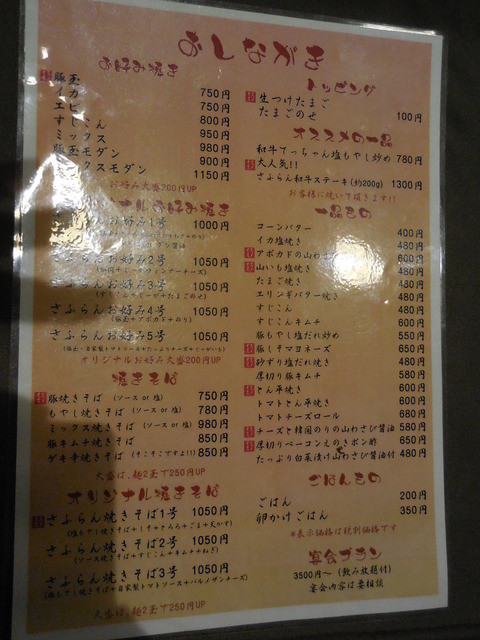 おしながき
お好み焼き
豚玉 750円
イカ 750円
エビ 800円
すじこん 950円
ミックス 980円
豚玉モダン 900円
ックスモダン 1150円
お好み大盛200円UP
ナルお好み焼き
お好み1号 1000円
さふらんお好み2号 1050円
さふらんお好み3号 1050円
さふらんお好み4号 1050円
(豚玉+アボカド+のり)
さふらんお好み5号 1050円
オリジナルお好み大盛200円UP
焼きそば
豚焼きそば (ソース or 塩) 750円
もやし焼きそば (ソース or 塩) 780円
ミックス焼きそば (ソース or 塩) 980円
豚キムチ焼きそば 850円
ゲキ辛焼きそば (そこそこですよ!!) 850円
大盛は、麺2玉で250円UP
オリジナル焼きそば
さふらん焼きそば1号 1050円
さふらん焼きそば2号 1050円
(ソース焼きそば+すじこん+キムチ+ねぎ)
さふらん焼きそば3号 1050円
大盛は、麺2玉で250円UP
トッピング
生つけたまご
たまごのせ 100円
オススメの一品
和牛てっちゃん塩もやし炒め 780円
大人気!!
さふらん和牛ステーキ(約200g) 1300円
お客様に焼いて頂きます!!
一品もの
コーンバター 400円
イカ塩焼き 480円
アボカドの山わさ 600円
山いも塩焼き 480円
たまご焼き 480円
エリンギバター焼き 480円
すじこん 480円
すじこんキムチ 600円
豚もやし塩だれ炒め 550円
豚しそマヨネーズ 650円
砂ずり塩だれ焼き 480円
厚切り豚キムチ 580円
とん平焼き 600円
トマトとん平焼き 600円
トマトチーズロール 680円
チーズと韓国のりの山わさび醤油 580円
厚切りベーコンえのきポン酢 650円
たっぷり白菜漬け山わさび醤油付 480円
ごはんもの
ごはん 200円
卵かけごはん 350円
*表示価格は税別価格です
宴会プラン
3500円〜 (飲み放題付)
宴会内容は要相談